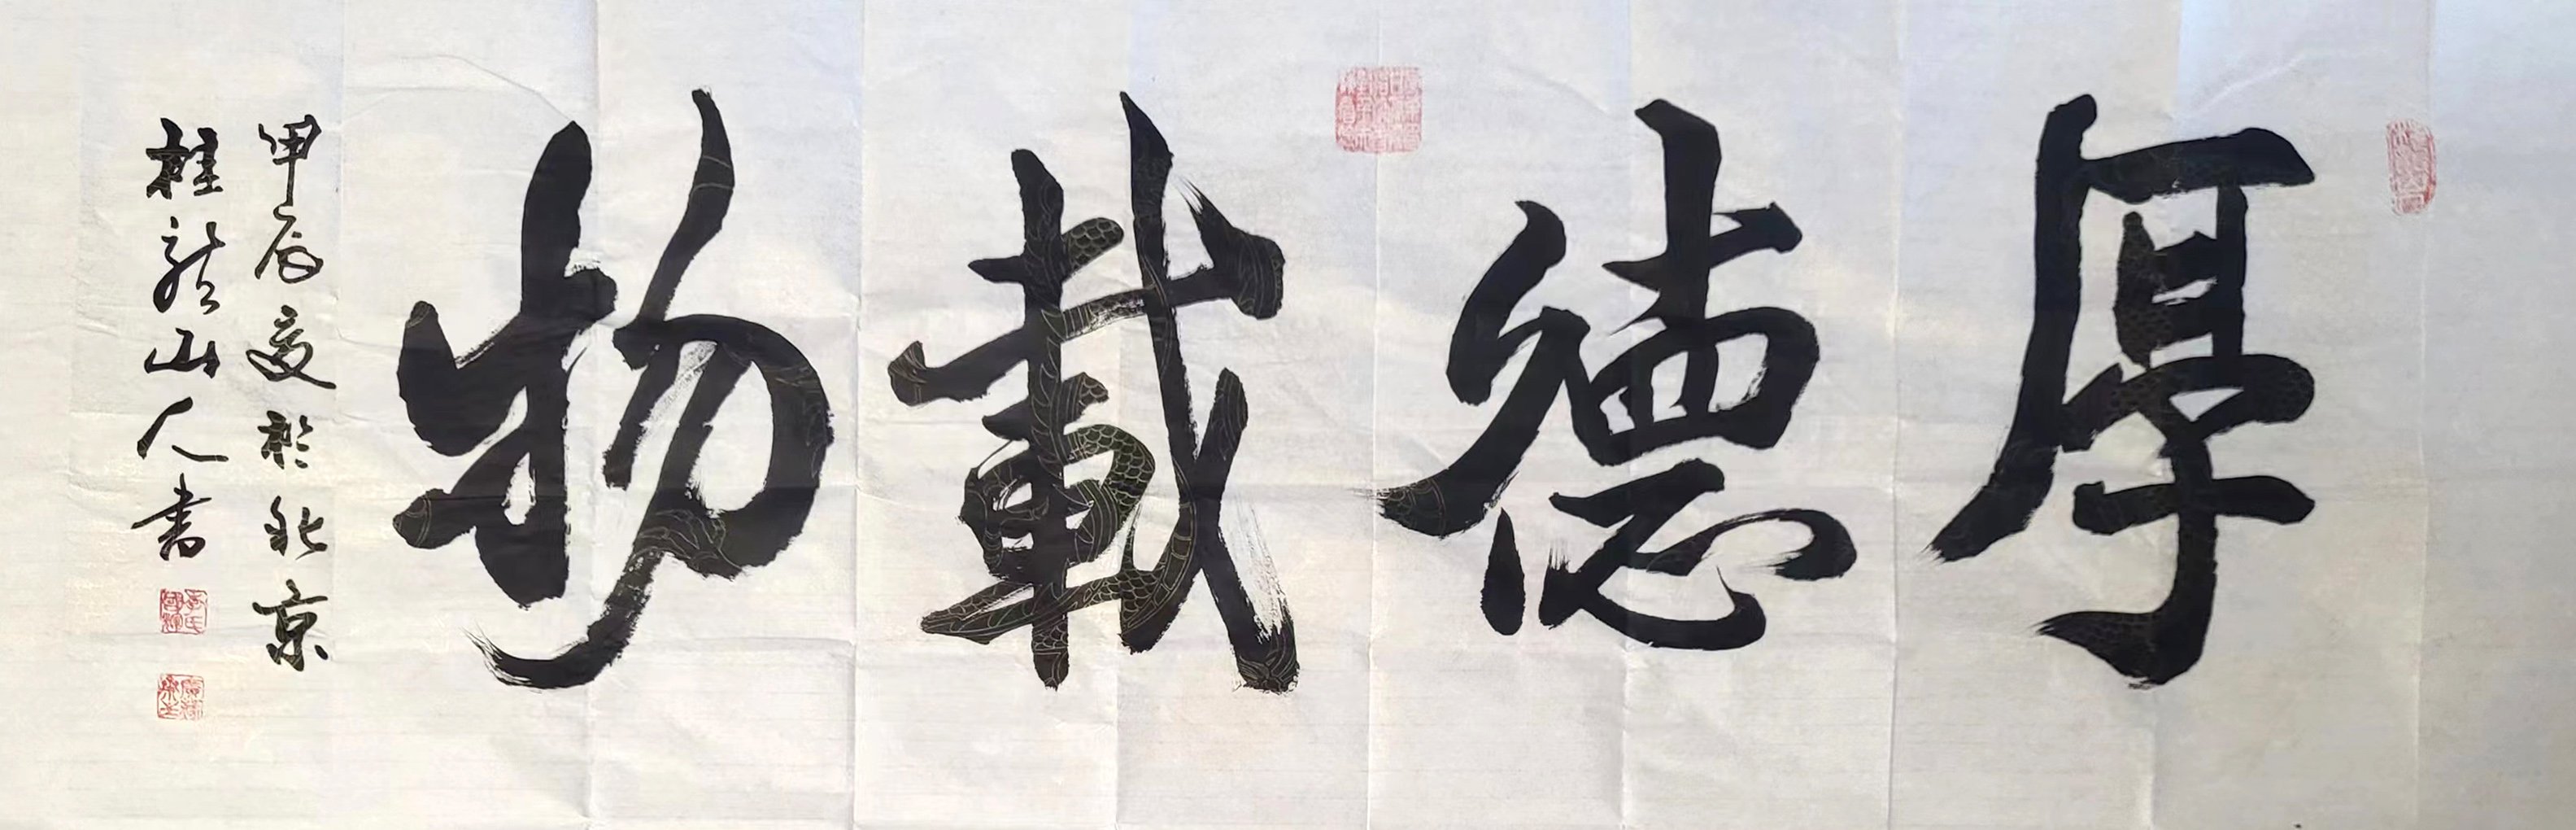 厚德載物
甲辰夏於北京
桂龍山人書